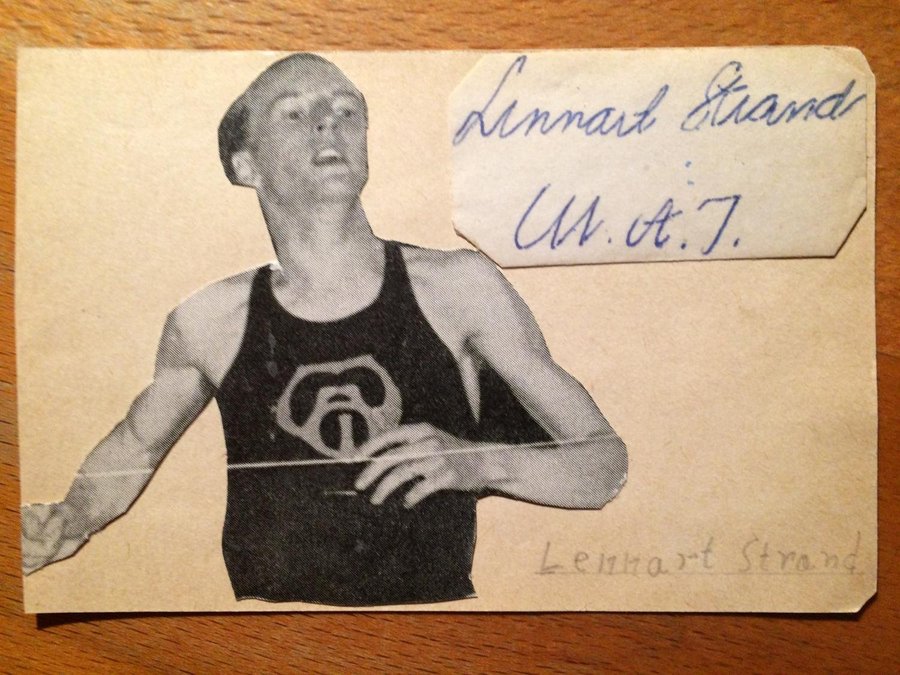 Lennart Strand
M.A.I.
Lennart Strand